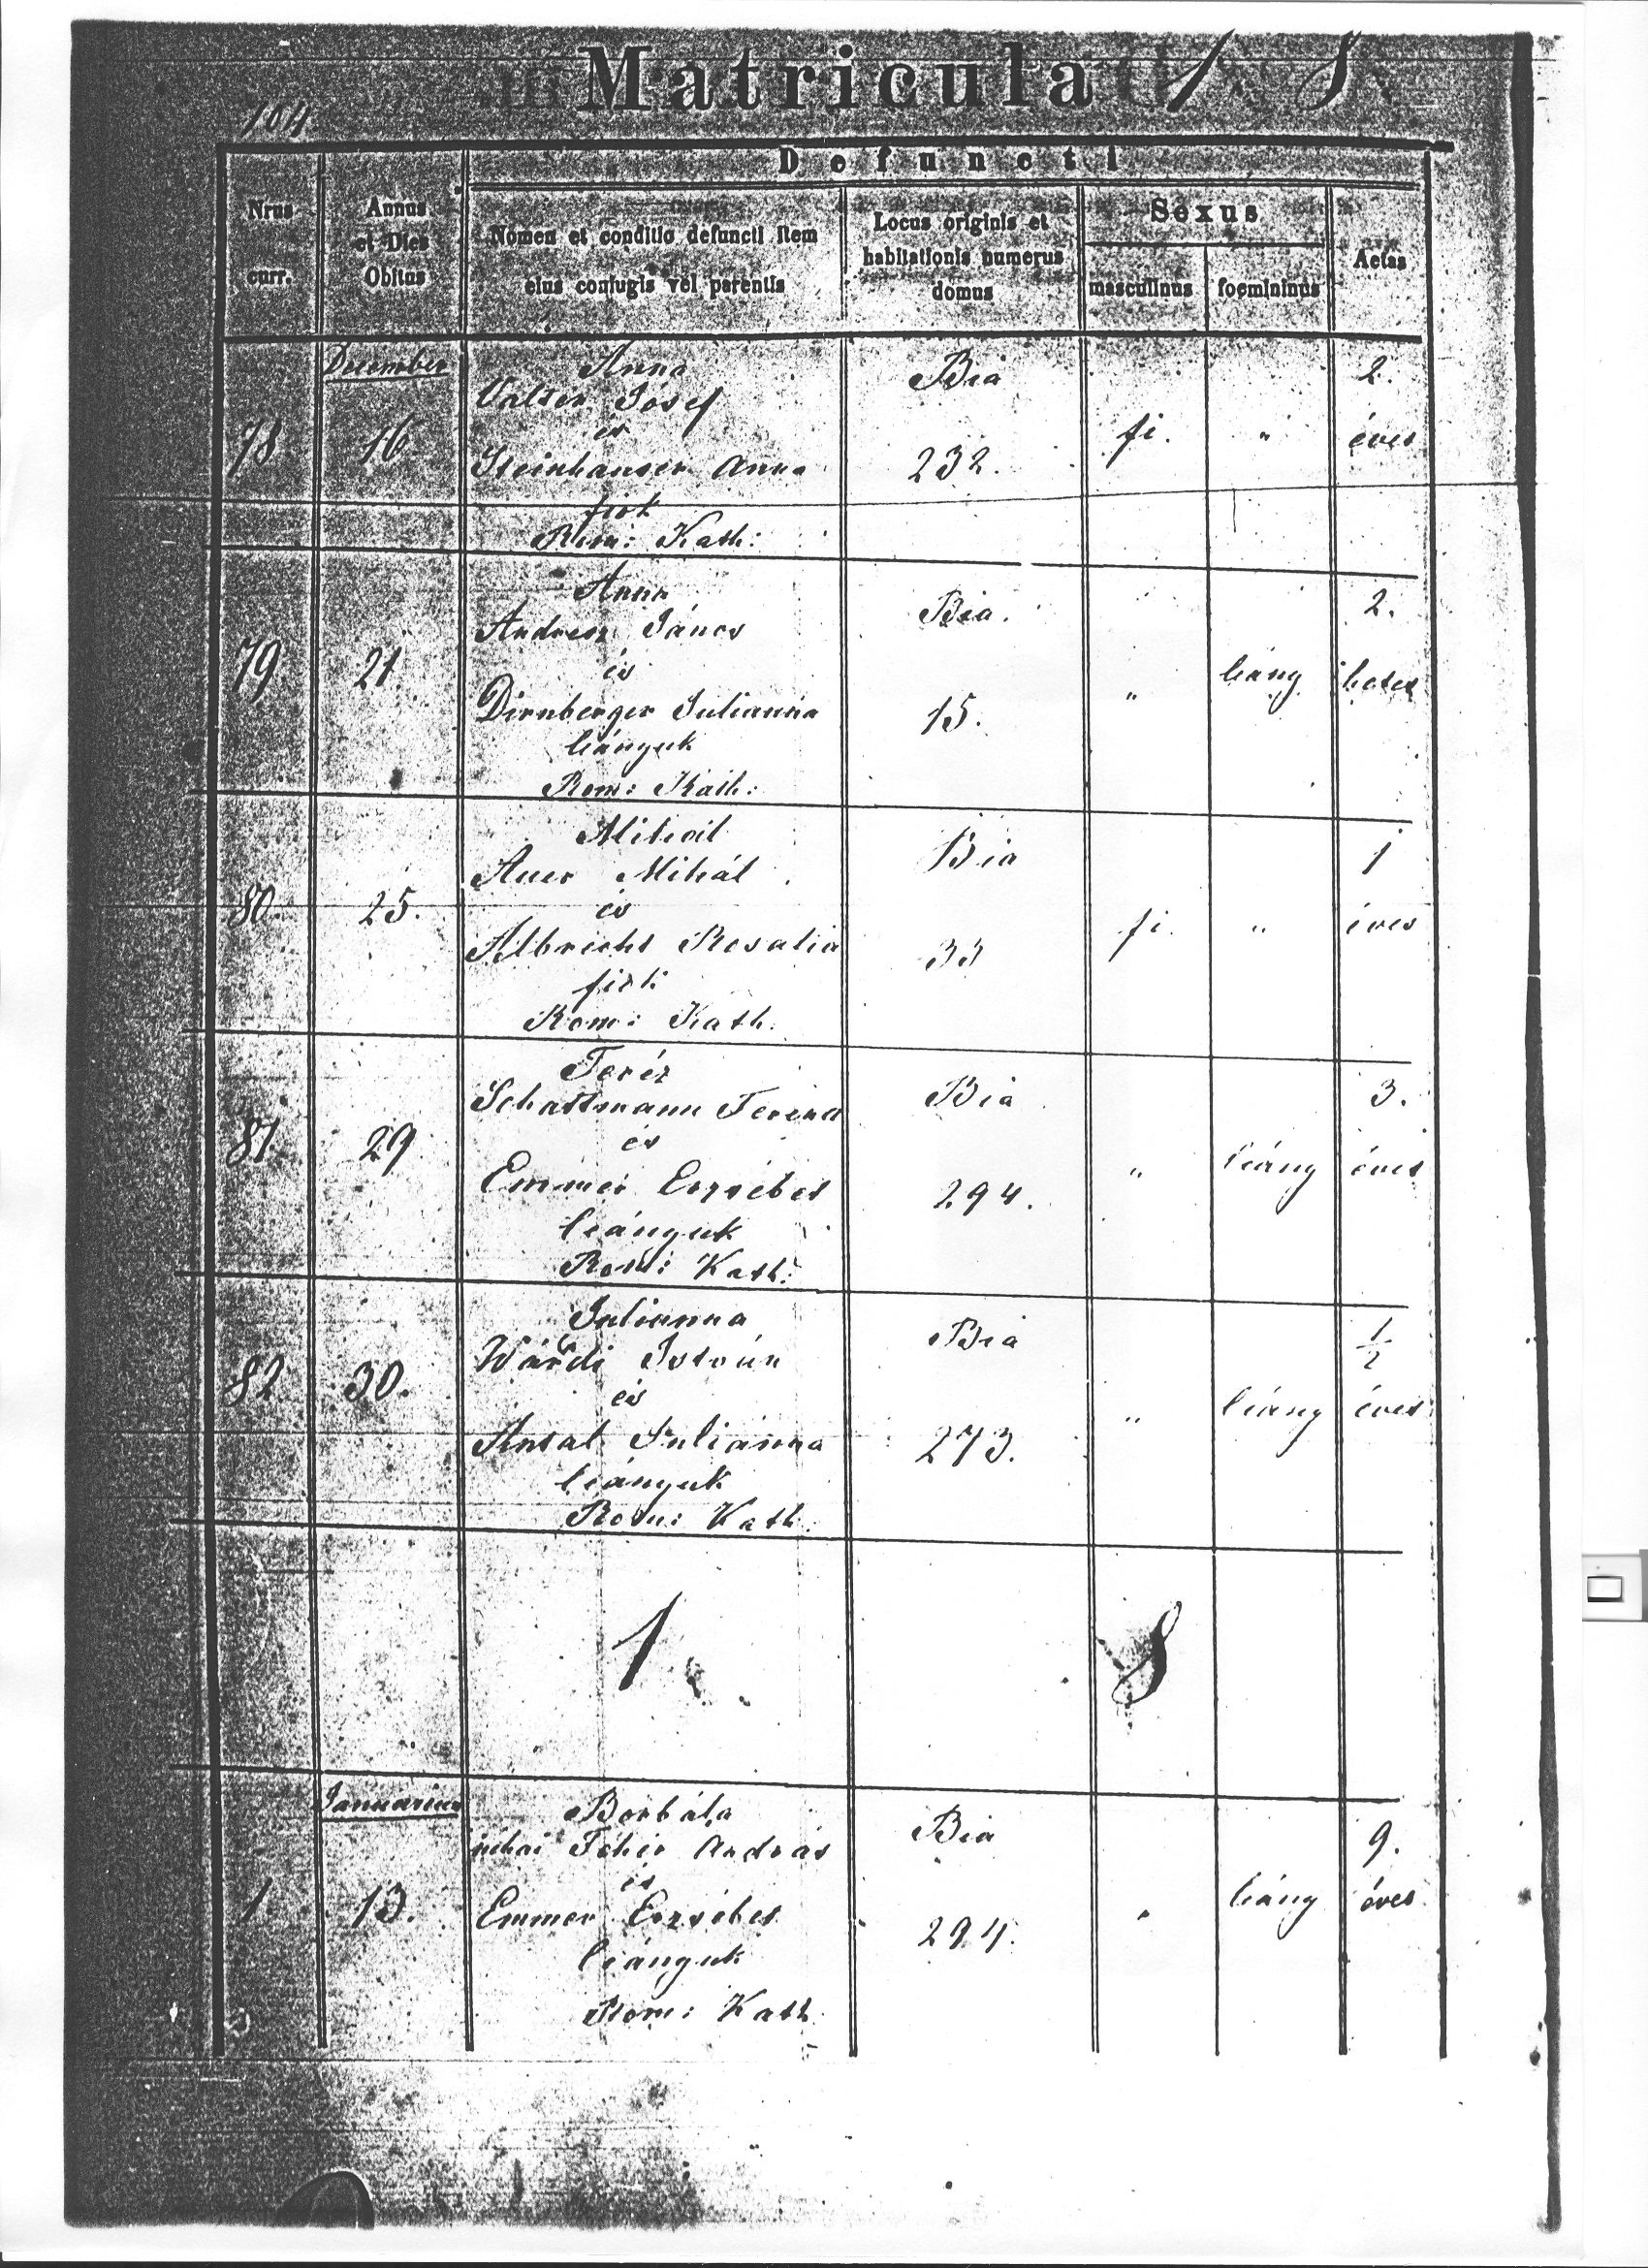 Matricula 1 8
104
Defuncti
Nrus
curr.
Annus
et Dies
Obitus
Nomen et conditio defuncti item
eius coniugis vel parentis
Locus originis et
habitationis numerus
domus
Sexus
masculinus
foemininus
Aetas
78
December
16
Anna
Valter Jósef
és
Steinhauser Anna
fiok
Rom: Kath:
Bia
232.
fi.
"
2.
éves
79
21
Anna
Andresz János
és
Dirnberger Julianna
leányuk
Rom: Kath:
Bia.
15.
"
leány
2.
hetes
80.
25.
Mihál
Auer Mihál
és
Albrecht Rosalia
fiok
Rom: Kath.
Bia
33
fi.
"
1
éves
81.
29
Teréz
Schattmann Ferencz
és
Emmer Erzsébet
leányuk
Rom: Kath:
Bia
294.
"
leány
3.
éves
82
30.
Julianna
Wárdi István
és
Antal Julianna
leányuk
Rom: Kath.
Bia
273.
"
leány
1/2
éves
1 8
1.
Januarius
13.
Borbála
néhai Fehér András
és
Emmer Erzsébet
leányuk
Rom: Kath.
Bia
294.
"
leány
9.
éves